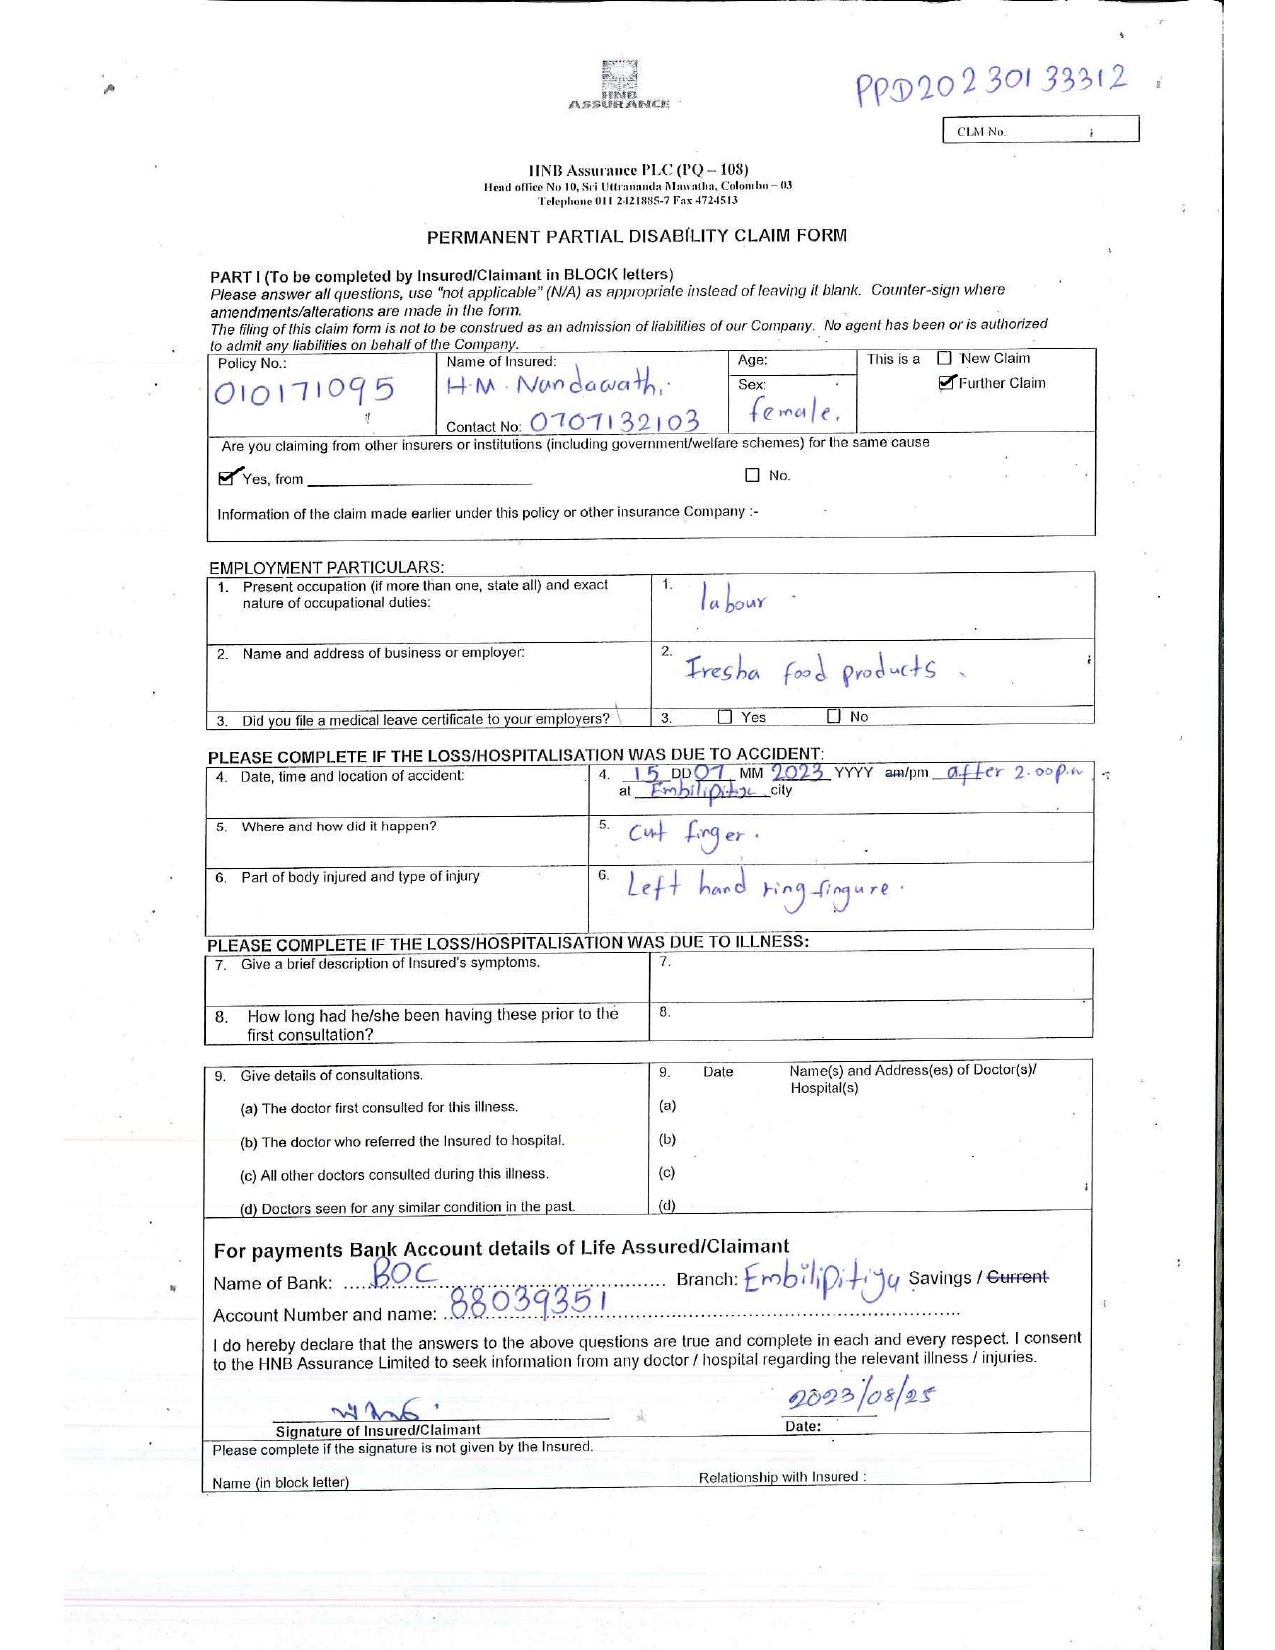 HNB
ASSURANCE
PPD20230133312
CLM No.
HNB Assurance PLC (PQ – 108)
Head office No 10, Sri Uttrananda Mawatha, Colombo – 03
Telephone 011 2421885-7 Fax 4724513
PERMANENT PARTIAL DISABILITY CLAIM FORM
PART I (To be completed by Insured/Claimant in BLOCK letters)
Please answer all questions, use "not applicable" (N/A) as appropriate instead of leaving it blank. Counter-sign where
amendments/alterations are made in the form.
The filing of this claim form is not to be construed as an admission of liabilities of our Company. No agent has been or is authorized
to admit any liabilities on behalf of the Company.
Policy No.: Name of Insured: Age: This is a New Claim
010171095 H.M. Nandawath. Sex: Further Claim
Contact No: 0707132103 female.
Are you claiming from other insurers or institutions (including government/welfare schemes) for the same cause
Yes, from No.
Information of the claim made earlier under this policy or other insurance Company :-
EMPLOYMENT PARTICULARS:
1. Present occupation (if more than one, state all) and exact 1. labour
nature of occupational duties:
2. Name and address of business or employer: 2. Iresha food products
3. Did you file a medical leave certificate to your employers? 3. Yes No
PLEASE COMPLETE IF THE LOSS/HOSPITALISATION WAS DUE TO ACCIDENT:
4. Date, time and location of accident: 4. 15 DD 07 MM 2023 YYYY am/pm after 2.00p.m
at Embilipitya city
5. Where and how did it happen? 5. Cut finger.
6. Part of body injured and type of injury 6. Left hand ring fingure.
PLEASE COMPLETE IF THE LOSS/HOSPITALISATION WAS DUE TO ILLNESS:
7. Give a brief description of Insured's symptoms. 7.
8. How long had he/she been having these prior to the 8.
first consultation?
9. Give details of consultations. 9. Date Name(s) and Address(es) of Doctor(s)/
Hospital(s)
(a) The doctor first consulted for this illness. (a)
(b) The doctor who referred the Insured to hospital. (b)
(c) All other doctors consulted during this illness. (c)
(d) Doctors seen for any similar condition in the past. (d)
For payments Bank Account details of Life Assured/Claimant
Name of Bank: BOC Branch: Embilipitiya Savings / Current
Account Number and name: 88039351
I do hereby declare that the answers to the above questions are true and complete in each and every respect. I consent
to the HNB Assurance Limited to seek information from any doctor / hospital regarding the relevant illness / injuries.
2023/08/25
Signature of Insured/Claimant Date:
Please complete if the signature is not given by the Insured.
Name (in block letter) Relationship with Insured :